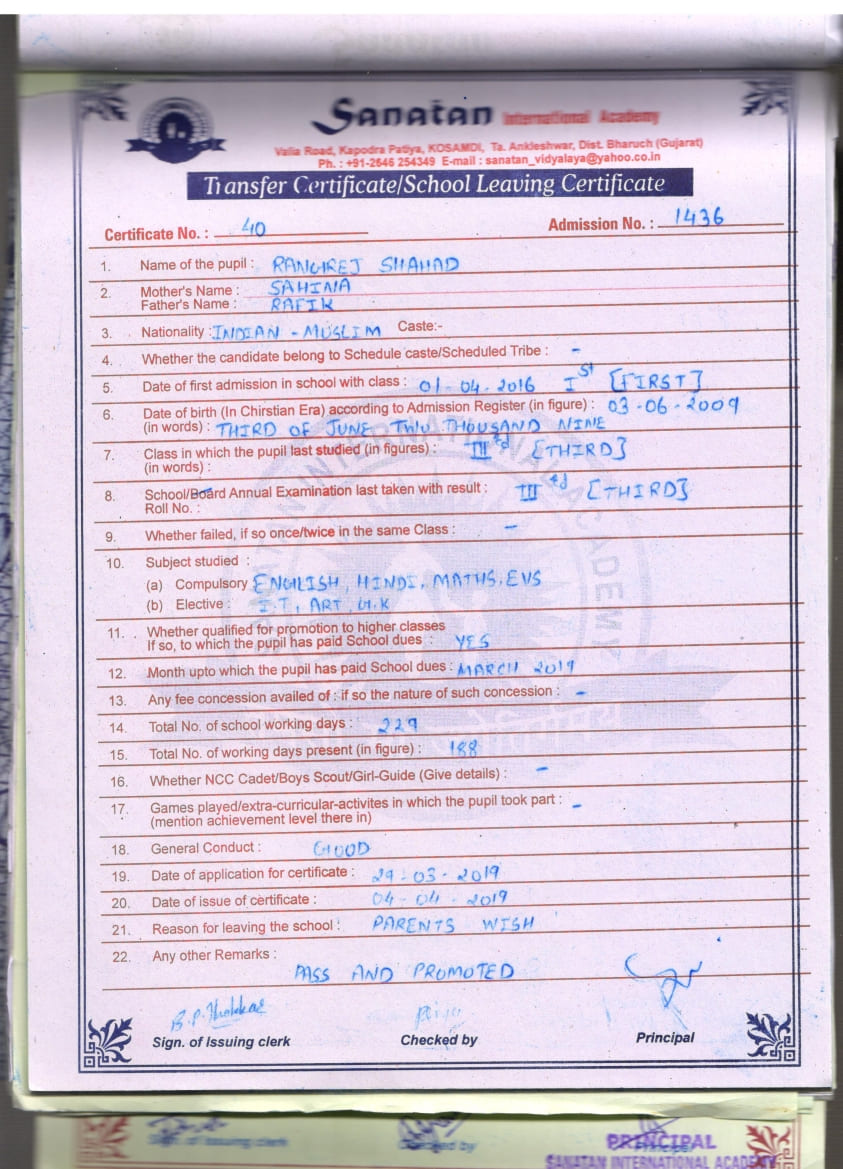 Sanatan International Academy
Valia Road, Kapodra Patiya, KOSAMDI, Ta. Ankleshwar, Dist. Bharuch (Gujarat)
Ph. : +91-2646 254349 E-mail : sanatan_vidyalaya@yahoo.co.in
Transfer Certificate/School Leaving Certificate
Certificate No. : 40 Admission No. : 1436
1. Name of the pupil : RANGREJ SHAHAD
2. Mother's Name : SAHINA
Father's Name : RAFIK
3. Nationality : INDIAN - MUSLIM Caste:-
4. Whether the candidate belong to Schedule caste/Scheduled Tribe : -
5. Date of first admission in school with class : 01-04-2016 Ist [FIRST]
6. Date of birth (In Chirstian Era) according to Admission Register (in figure) : 03-06-2009
(in words) : THIRD OF JUNE TWO THOUSAND NINE
7. Class in which the pupil last studied (in figures) : IIIrd [THIRD]
(in words) :
8. School/Board Annual Examination last taken with result : IIIrd [THIRD]
Roll No. :
9. Whether failed, if so once/twice in the same Class : -
10. Subject studied :
(a) Compulsory ENGLISH, HINDI, MATHS, EVS
(b) Elective : I.T, ART, G.K
11. Whether qualified for promotion to higher classes
If so, to which the pupil has paid School dues : YES
12. Month upto which the pupil has paid School dues : MARCH 2019
13. Any fee concession availed of : if so the nature of such concession : -
14. Total No. of school working days : 229
15. Total No. of working days present (in figure) : 188
16. Whether NCC Cadet/Boys Scout/Girl-Guide (Give details) : -
17. Games played/extra-curricular-activites in which the pupil took part : -
(mention achievement level there in)
18. General Conduct : GOOD
19. Date of application for certificate : 29-03-2019
20. Date of issue of certificate : 04-04-2019
21. Reason for leaving the school : PARENTS WISH
22. Any other Remarks :
PASS AND PROMOTED
B.P. Thakkar
Sign. of Issuing clerk Checked by Principal
Sign. of Issuing clerk Checked by PRINCIPAL
SANATAN INTERNATIONAL ACADEMY